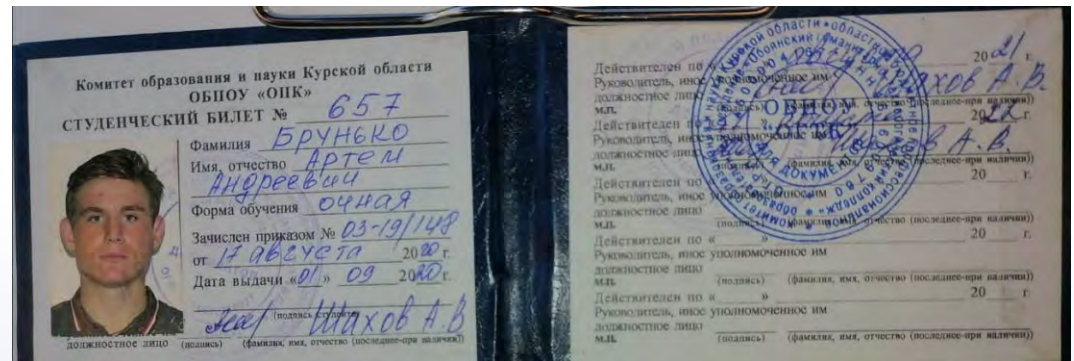 Комитет образования и науки Курской области
ОБПОУ «ОПК»
СТУДЕНЧЕСКИЙ БИЛЕТ № 657
Фамилия БРУНЬКО
Имя, отчество Артем
Андреевич
Форма обучения очная
Зачислен приказом № 03-19/148
от 17 августа 2020 г.
Дата выдачи «01» 09 2020 г.
(подпись студента)
Шахов А.В
должностное лицо (подпись) (фамилия, имя, отчество (последнее-при наличии))
Действителен по 2021 г.
Руководитель, иное уполномоченное им
должностное лицо Шахов А.В.
М.П. (подпись) (фамилия, имя, отчество (последнее-при наличии))
Действителен по 2022 г.
Руководитель, иное уполномоченное им
должностное лицо Шахов А.В.
М.П. (подпись) (фамилия, имя, отчество (последнее-при наличии))
Действителен по « » 20 г.
Руководитель, иное уполномоченное им
должностное лицо
М.П. (подпись) (фамилия, имя, отчество (последнее-при наличии))
Действителен по « » 20 г.
Руководитель, иное уполномоченное им
должностное лицо
М.П. (подпись) (фамилия, имя, отчество (последнее-при наличии))
Действителен по « » 20 г.
Руководитель, иное уполномоченное им
должностное лицо
М.П. (подпись) (фамилия, имя, отчество (последнее-при наличии))